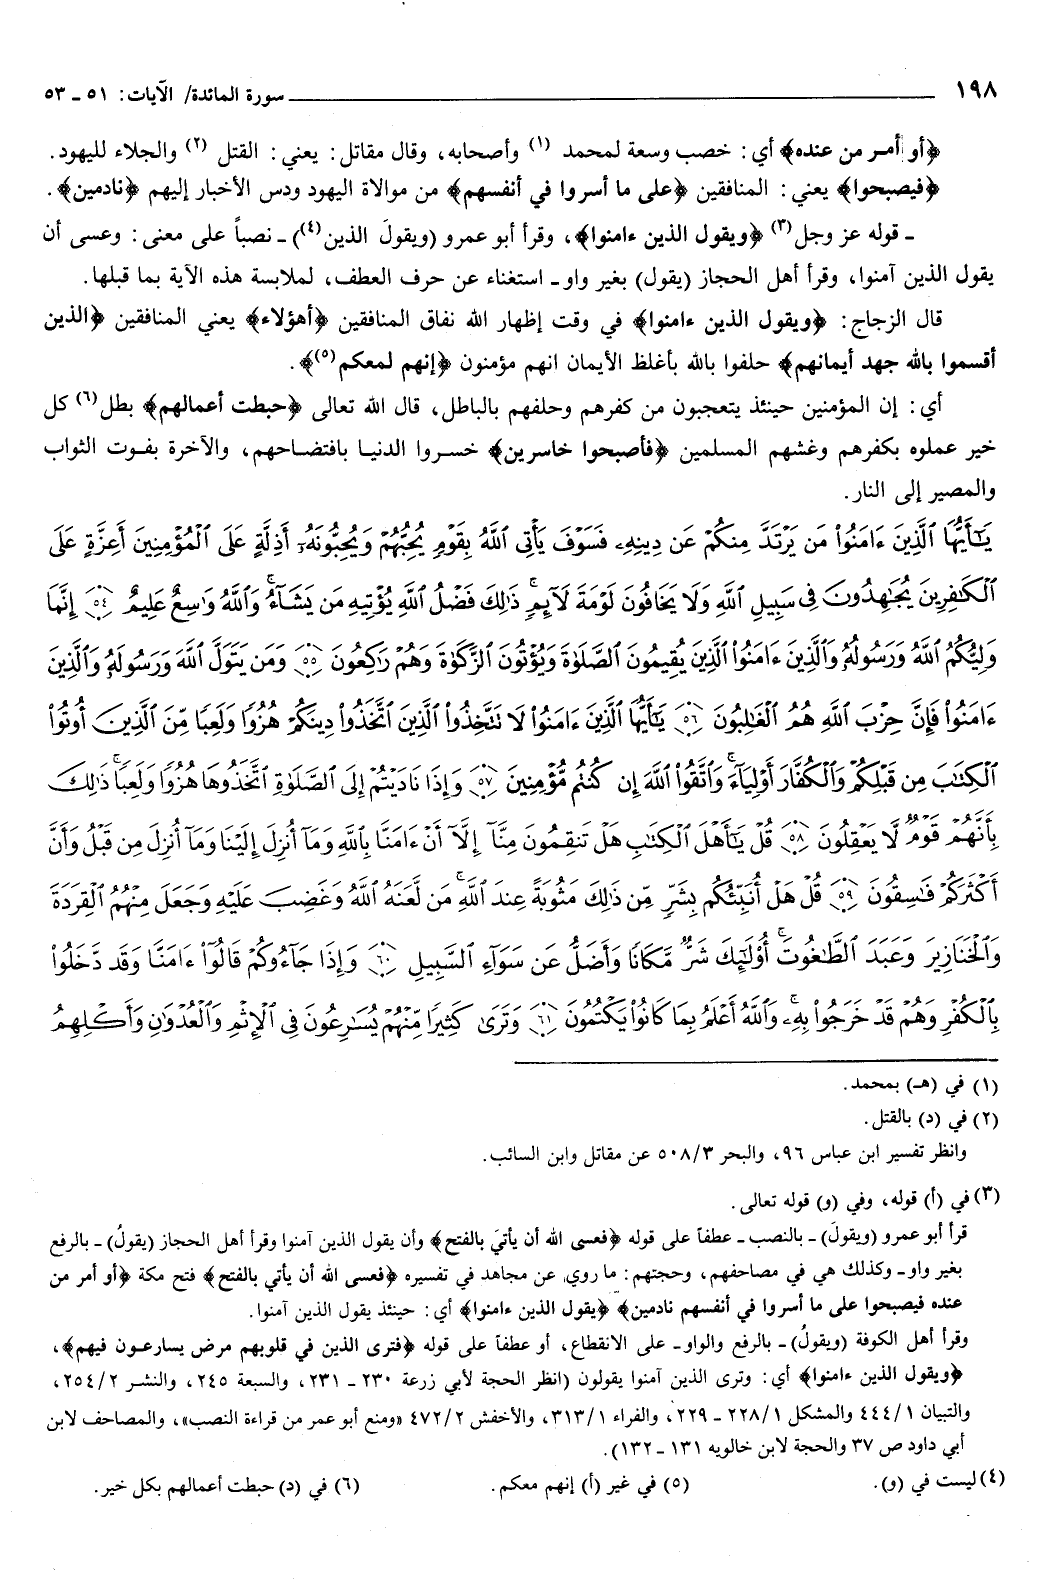 ١٩٨ سورة المائدة/ الآيات: ٥١ ـ ٥٣
﴿أو أمر من عنده﴾ أي: خصب وسعة لمحمد (١) وأصحابه، وقال مقاتل: يعني: القتل (٢) والجلاء لليهود.
﴿فيصبحوا﴾ يعني: المنافقين ﴿على ما أسروا في أنفسهم﴾ من موالاة اليهود ودس الأخبار إليهم ﴿نادمين﴾.
ـ قوله عز وجل(٣) ﴿ويقول الذين ءامنوا﴾، وقرأ أبو عمرو (ويقولَ الذين(٤)) ـ نصباً على معنى: وعسى أن
يقول الذين آمنوا، وقرأ أهل الحجاز (يقول) بغير واو ـ استغناء عن حرف العطف، لملابسة هذه الآية بما قبلها.
قال الزجاج: ﴿ويقول الذين ءامنوا﴾ في وقت إظهار الله نفاق المنافقين ﴿أهؤلاء﴾ يعني المنافقين ﴿الذين
أقسموا بالله جهد أيمانهم﴾ حلفوا بالله بأغلظ الأيمان انهم مؤمنون ﴿إنهم لمعكم(٥)﴾.
أي: إن المؤمنين حينئذ يتعجبون من كفرهم وحلفهم بالباطل، قال الله تعالى ﴿حبطت أعمالهم﴾ بطل(٦) كل
خير عملوه بكفرهم وغشهم المسلمين ﴿فأصبحوا خاسرين﴾ خسروا الدنيا بافتضاحهم، والآخرة بفوت الثواب
والمصير إلى النار.
يَٰٓأَيُّهَا ٱلَّذِينَ ءَامَنُوا۟ مَن يَرْتَدَّ مِنكُمْ عَن دِينِهِۦ فَسَوْفَ يَأْتِى ٱللَّهُ بِقَوْمٍ يُحِبُّهُمْ وَيُحِبُّونَهُۥٓ أَذِلَّةٍ عَلَى ٱلْمُؤْمِنِينَ أَعِزَّةٍ عَلَى
ٱلْكَٰفِرِينَ يُجَٰهِدُونَ فِى سَبِيلِ ٱللَّهِ وَلَا يَخَافُونَ لَوْمَةَ لَآئِمٍ ۚ ذَٰلِكَ فَضْلُ ٱللَّهِ يُؤْتِيهِ مَن يَشَآءُ ۚ وَٱللَّهُ وَٰسِعٌ عَلِيمٌ ﴿٥٤﴾ إِنَّمَا
وَلِيُّكُمُ ٱللَّهُ وَرَسُولُهُۥ وَٱلَّذِينَ ءَامَنُوا۟ ٱلَّذِينَ يُقِيمُونَ ٱلصَّلَوٰةَ وَيُؤْتُونَ ٱلزَّكَوٰةَ وَهُمْ رَٰكِعُونَ ﴿٥٥﴾ وَمَن يَتَوَلَّ ٱللَّهَ وَرَسُولَهُۥ وَٱلَّذِينَ
ءَامَنُوا۟ فَإِنَّ حِزْبَ ٱللَّهِ هُمُ ٱلْغَٰلِبُونَ ﴿٥٦﴾ يَٰٓأَيُّهَا ٱلَّذِينَ ءَامَنُوا۟ لَا تَتَّخِذُوا۟ ٱلَّذِينَ ٱتَّخَذُوا۟ دِينَكُمْ هُزُوًا وَلَعِبًا مِّنَ ٱلَّذِينَ أُوتُوا۟
ٱلْكِتَٰبَ مِن قَبْلِكُمْ وَٱلْكُفَّارَ أَوْلِيَآءَ ۚ وَٱتَّقُوا۟ ٱللَّهَ إِن كُنتُم مُّؤْمِنِينَ ﴿٥٧﴾ وَإِذَا نَادَيْتُمْ إِلَى ٱلصَّلَوٰةِ ٱتَّخَذُوهَا هُزُوًا وَلَعِبًا ۚ ذَٰلِكَ
بِأَنَّهُمْ قَوْمٌ لَّا يَعْقِلُونَ ﴿٥٨﴾ قُلْ يَٰٓأَهْلَ ٱلْكِتَٰبِ هَلْ تَنقِمُونَ مِنَّآ إِلَّآ أَنْ ءَامَنَّا بِٱللَّهِ وَمَآ أُنزِلَ إِلَيْنَا وَمَآ أُنزِلَ مِن قَبْلُ وَأَنَّ
أَكْثَرَكُمْ فَٰسِقُونَ ﴿٥٩﴾ قُلْ هَلْ أُنَبِّئُكُم بِشَرٍّ مِّن ذَٰلِكَ مَثُوبَةً عِندَ ٱللَّهِ ۚ مَن لَّعَنَهُ ٱللَّهُ وَغَضِبَ عَلَيْهِ وَجَعَلَ مِنْهُمُ ٱلْقِرَدَةَ
وَٱلْخَنَازِيرَ وَعَبَدَ ٱلطَّٰغُوتَ ۚ أُو۟لَٰٓئِكَ شَرٌّ مَّكَانًا وَأَضَلُّ عَن سَوَآءِ ٱلسَّبِيلِ ﴿٦٠﴾ وَإِذَا جَآءُوكُمْ قَالُوٓا۟ ءَامَنَّا وَقَد دَّخَلُوا۟
بِٱلْكُفْرِ وَهُمْ قَدْ خَرَجُوا۟ بِهِۦ ۚ وَٱللَّهُ أَعْلَمُ بِمَا كَانُوا۟ يَكْتُمُونَ ﴿٦١﴾ وَتَرَىٰ كَثِيرًا مِّنْهُمْ يُسَٰرِعُونَ فِى ٱلْإِثْمِ وَٱلْعُدْوَٰنِ وَأَكْلِهِمُ
(١) في (هـ) بمحمد.
(٢) في (د) بالقتل.
وانظر تفسير ابن عباس ٩٦، والبحر ٥٠٨/٣ عن مقاتل وابن السائب.
(٣) في (أ) قوله، وفي (و) قوله تعالى.
قرأ أبو عمرو (ويقولَ) ـ بالنصب ـ عطفاً على قوله ﴿فعسى الله أن يأتيَ بالفتح﴾ وأن يقول الذين آمنوا وقرأ أهل الحجاز (يقولُ) ـ بالرفع
بغير واو ـ وكذلك هي في مصاحفهم، وحجتهم: ما روي عن مجاهد في تفسيره ﴿فعسى الله أن يأتي بالفتح﴾ فتح مكة ﴿أو أمر من
عنده فيصبحوا على ما أسروا في أنفسهم نادمين﴾ ﴿يقول الذين ءامنوا﴾ أي: حينئذ يقول الذين آمنوا.
وقرأ أهل الكوفة (ويقولُ) ـ بالرفع والواو ـ على الانقطاع، أو عطفاً على قوله ﴿فترى الذين في قلوبهم مرض يسارعون فيهم﴾،
﴿ويقول الذين ءامنوا﴾ أي: وترى الذين آمنوا يقولون (انظر الحجة لأبي زرعة ٢٣٠ ـ ٢٣١، والسبعة ٢٤٥، والنشر ٢٥٤/٢،
والتبيان ٤٤٤/١ والمشكل ٢٢٨/١ ـ ٢٢٩، والفراء ٣١٣/١، والأخفش ٤٧٢/٢ «ومنع أبو عمر من قراءة النصب»، والمصاحف لابن
أبي داود ص ٣٧ والحجة لابن خالويه ١٣١ ـ ١٣٢).
(٤) ليست في (و). (٥) في غير (أ) إنهم معكم. (٦) في (د) حبطت أعمالهم بكل خير.